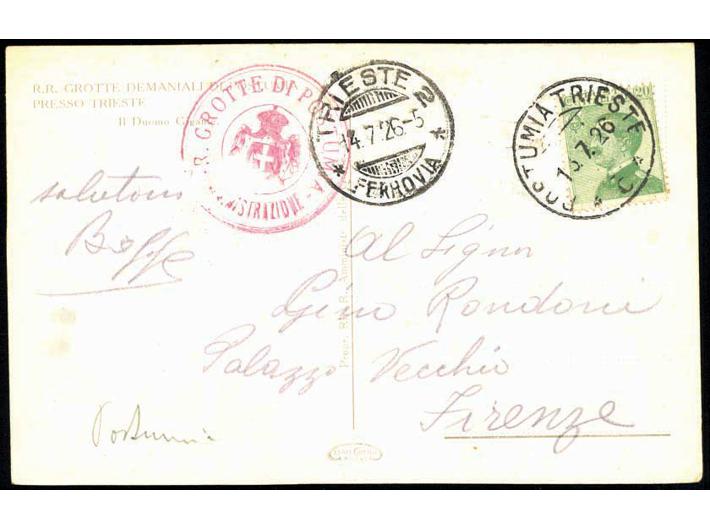 R.R. GROTTE DEMANIALI DI
PRESSO TRIESTE
Il Duomo
R.R. GROTTE DI POSTUMIA
AMMINISTRAZIONE
TRIESTE 2
14.7.26-5
* FERROVIA *
POSTUMIA TRIESTE
13.7.26
* C *
20
saluton
Boffe
Al Signor
Gino Rondoni
Palazzo Vecchio
Firenze
Postumia
Propr. RR.